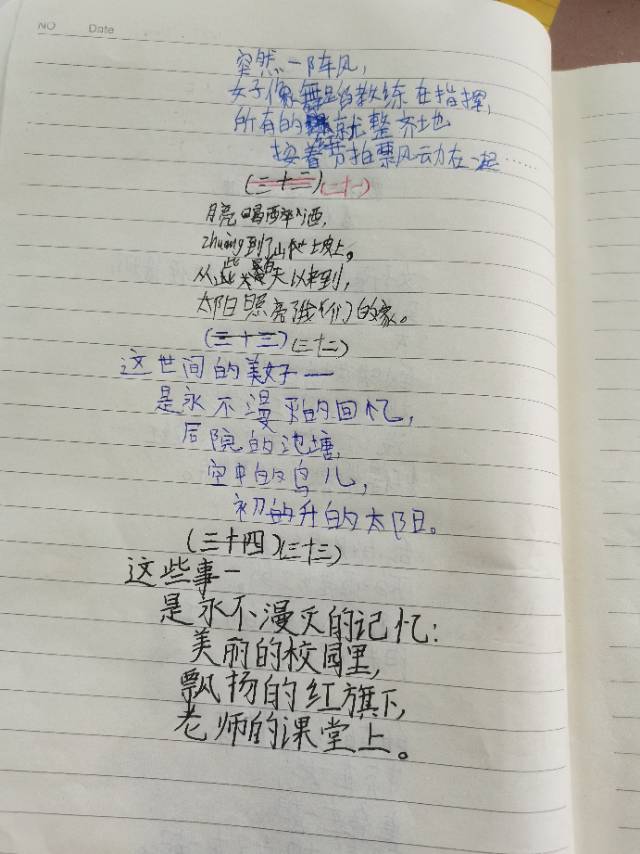 NO Date
突然一阵风,
女子像舞蹈教练在指挥,
所有的 就整齐地
按着节拍飘风动在一起……
(三十二)(三十一)
月亮喝醉酒,
zhuàng到了山坡上。
从此 天以来到,
太阳照亮 们的家。
(三十三)(三十二)
这世间的美好一
是永不漫灭的回忆,
后院的池塘,
空中的鸟儿,
初的升的太阳。
(三十四)(三十三)
这些事一
是永不漫灭的记忆:
美丽的校园里,
飘扬的红旗下,
老师的课堂上。